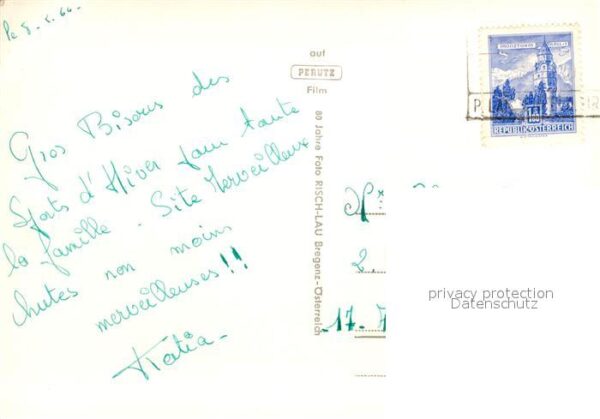 le 5.2.60.
Gros Bisous des
Sports d'Hiver pour toute
la famille - Site Merveilleux
chutes non moins
merveilleuses!!
Katia-
auf
PERUTZ
Film
80 Jahre Foto RISCH-LAU Bregenz-Österreich
REPUBLIK ÖSTERREICH
2.
17.
privacy protection
Datenschutz